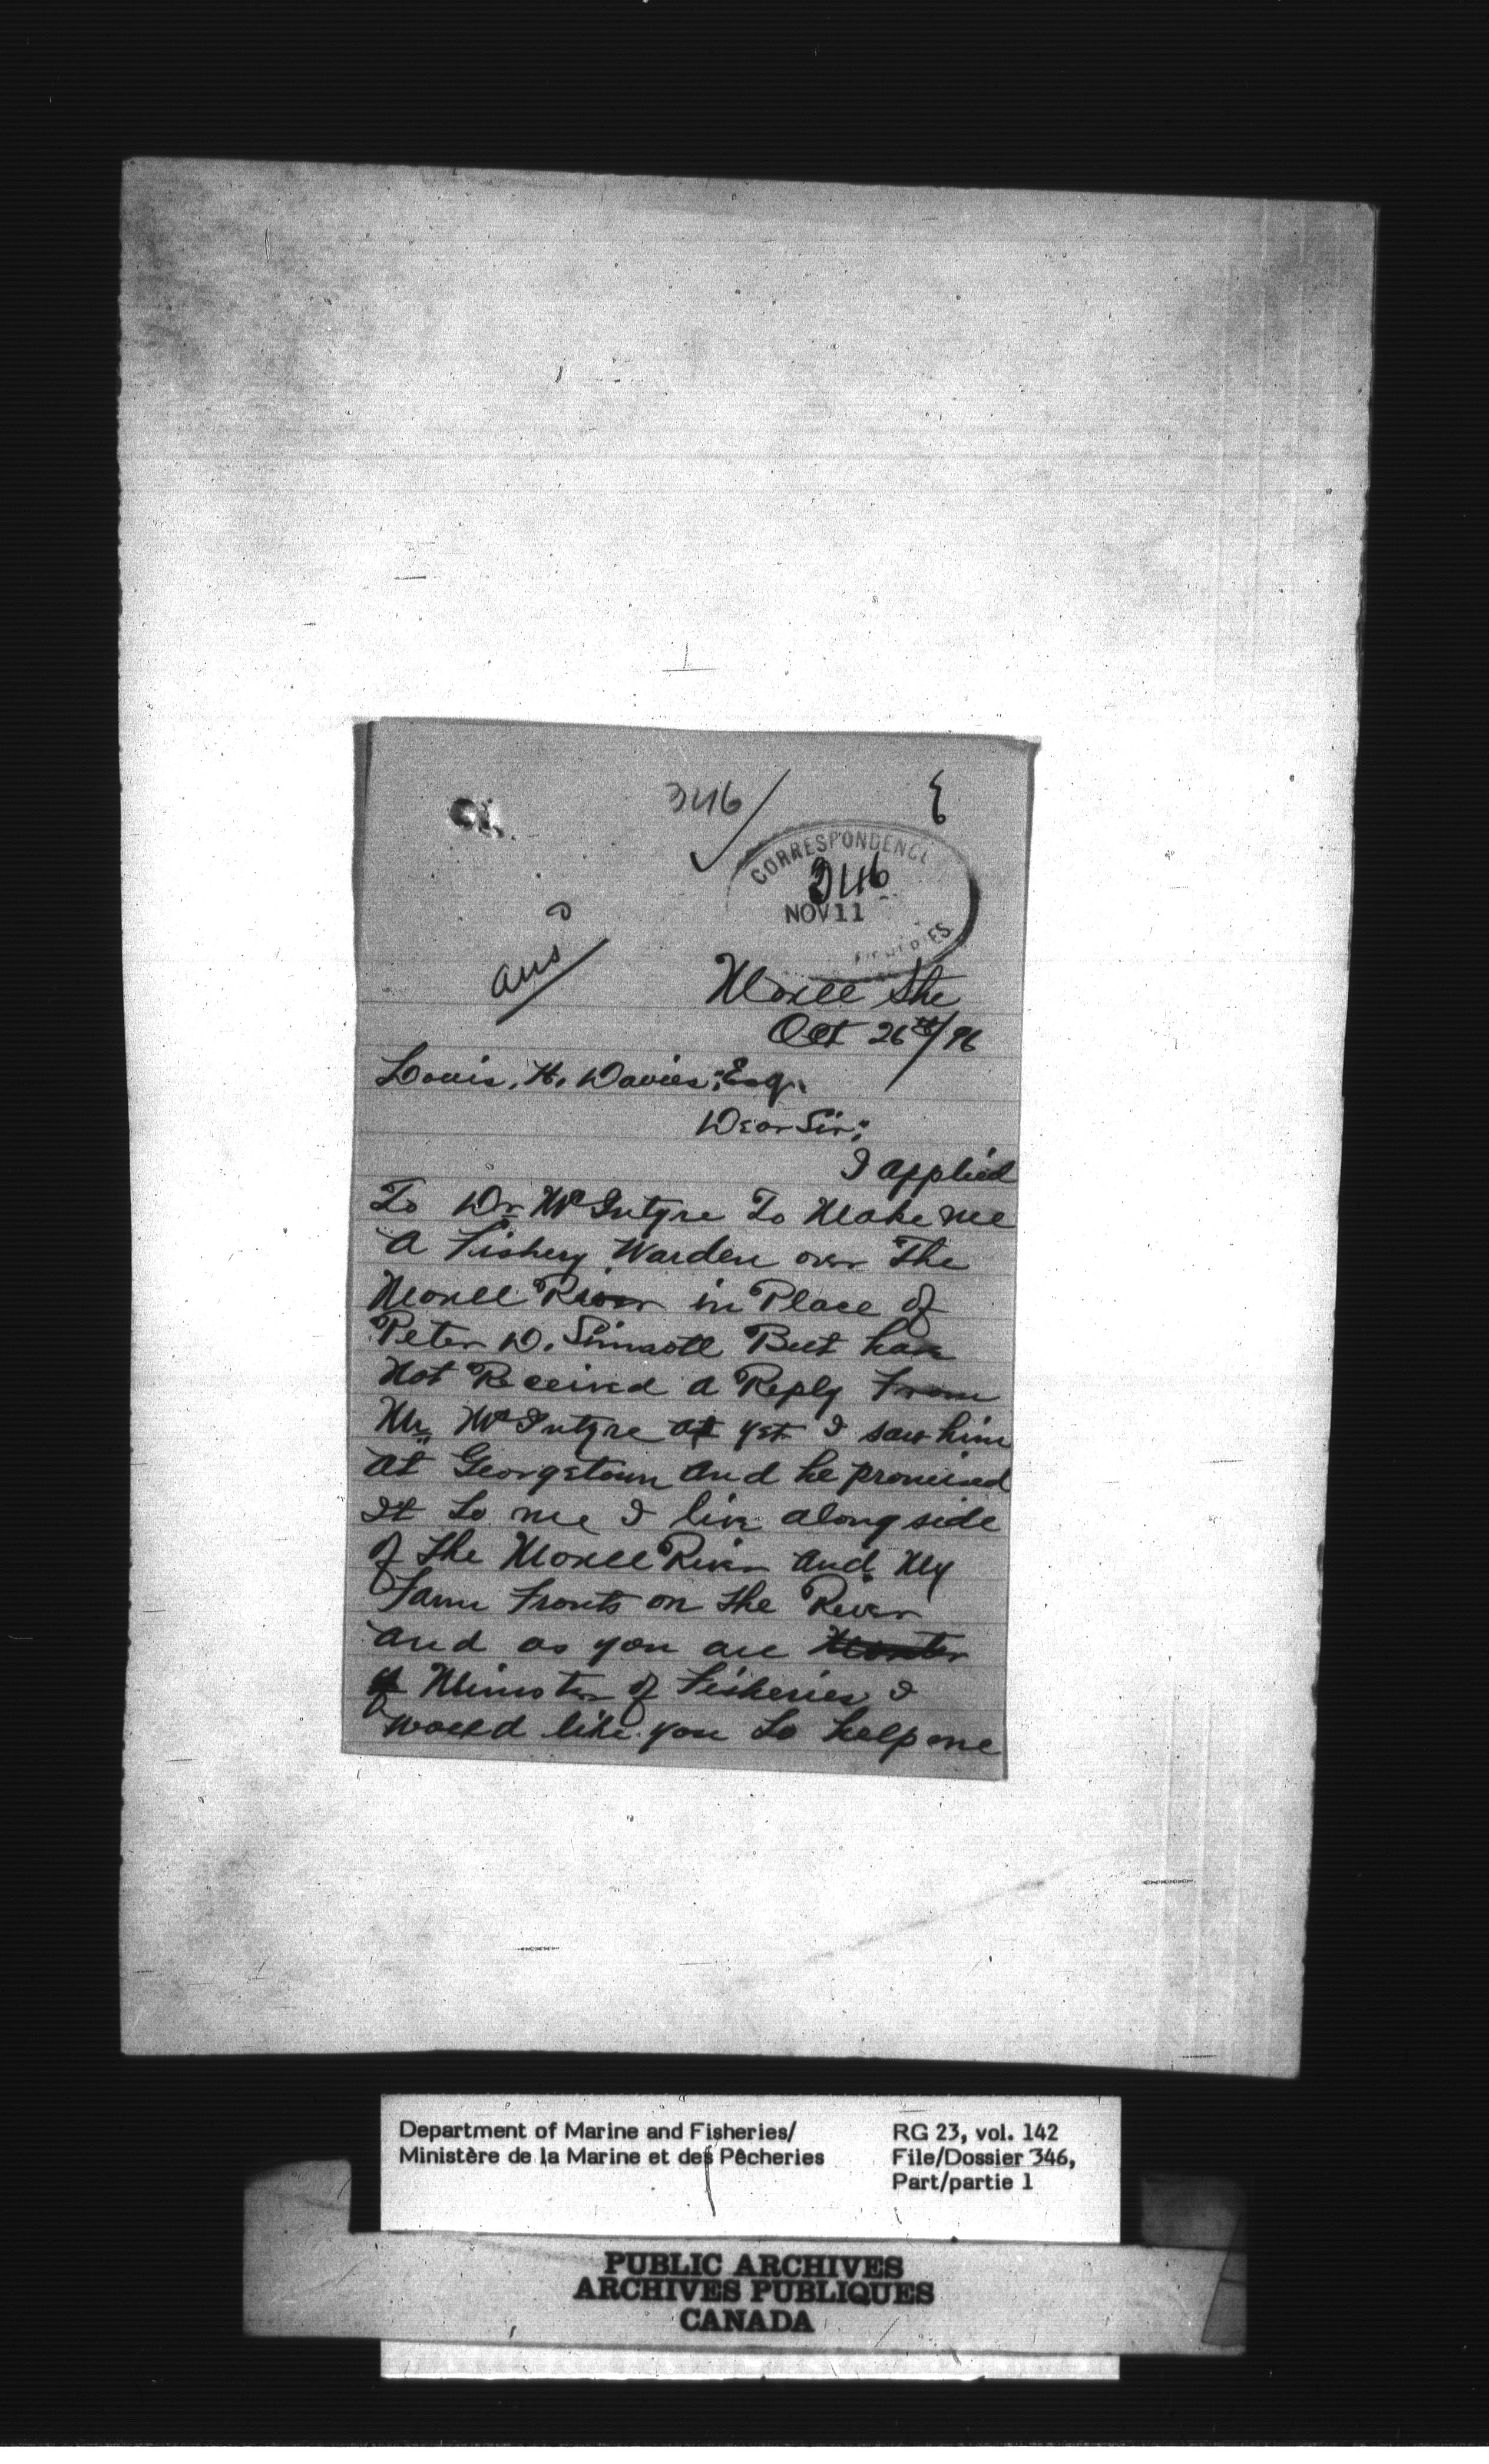 346
CORRESPONDENCE
346
NOV 11
FISHERIES
ansd
Morell Stn
Oct 26th/96
Louis. H. Davies; Esq.
Dear Sir;
I applied
To Dr McIntyre To Make me
A Fishery Warden over The
Morell River in Place of
Peter D. Sinnott But have
Not Received a Reply From
Mr McIntyre at yet I saw him
At Georgetown And he promised
It to me I live along side
of the Morell River And My
Farm Fronts on the River
And as you are
Minister of Fisheries I
Would like you to help me
Department of Marine and Fisheries/
Ministère de la Marine et des Pêcheries
RG 23, vol. 142
File/Dossier 346,
Part/partie 1
PUBLIC ARCHIVES
ARCHIVES PUBLIQUES
CANADA